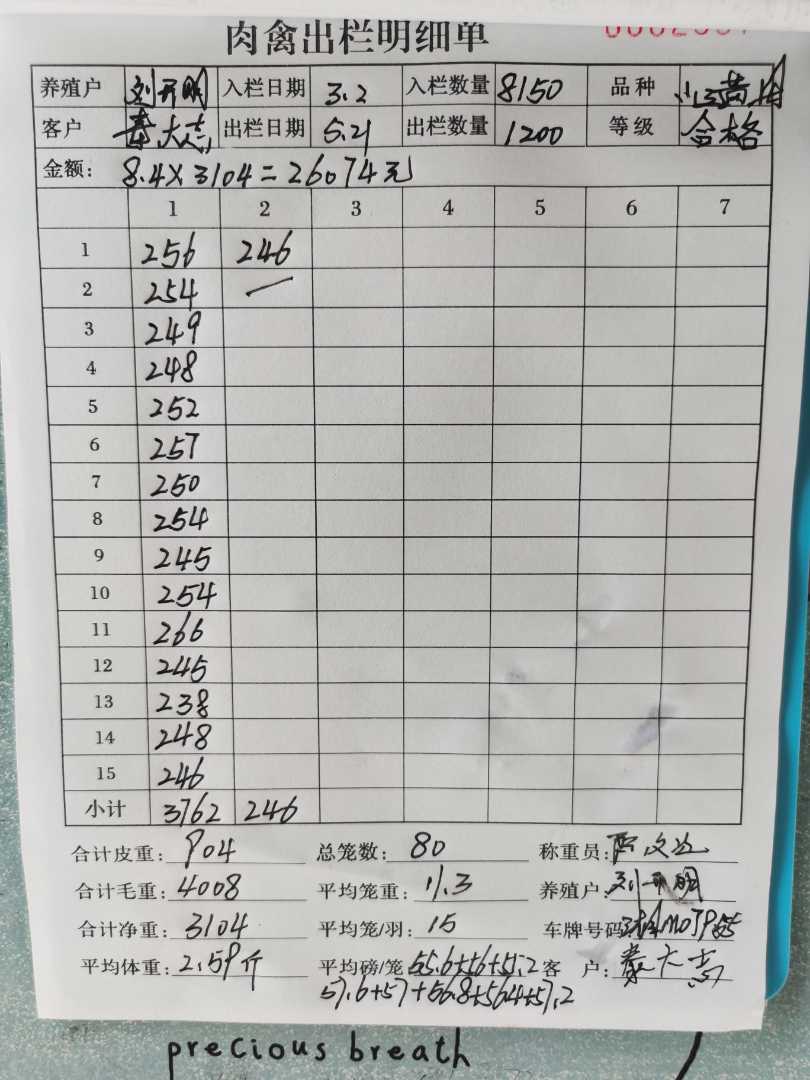 肉禽出栏明细单
养殖户 刘开明 入栏日期 3.2 入栏数量 8150 品种
客户 大志 出栏日期 5.21 出栏数量 1200 等级 合格
金额: 8.4×3104=26074元
1 2 3 4 5 6 7
1 256 246
2 254 —
3 249
4 248
5 252
6 257
7 250
8 254
9 245
10 254
11 266
12 245
13 238
14 248
15 246
小计 3762 246
合计皮重: 904 总笼数: 80 称重员:
合计毛重: 4008 平均笼重: 11.3 养殖户: 刘开明
合计净重: 3104 平均笼/羽: 15 车牌号码:
平均体重: 2.59斤 平均磅/笼 55.6+56+55.2 客 户: 大志
57.6+57+56.8+56.4+57.2
precious breath